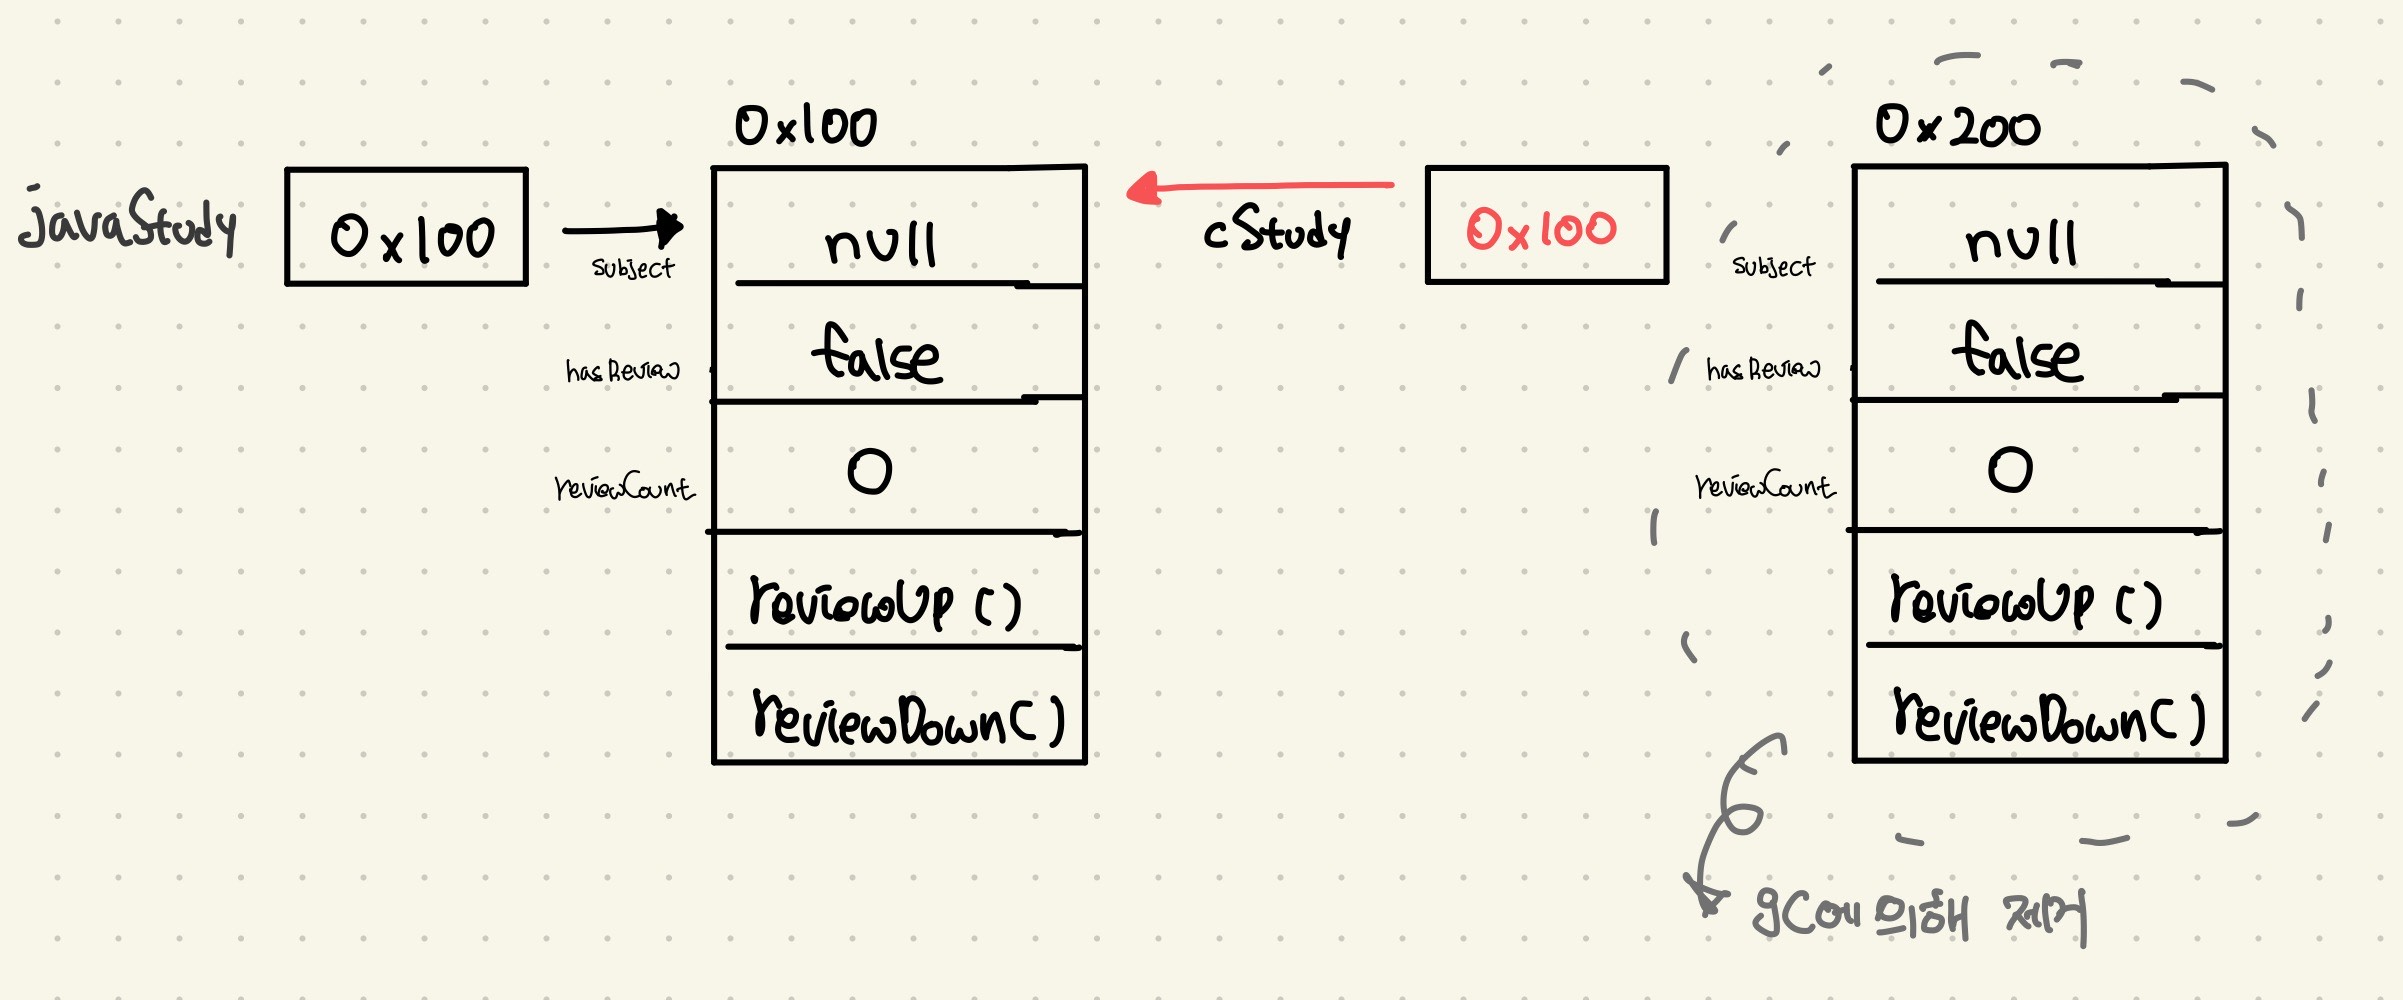 javaStudy
0x100
0x100
subject
null
hasReview
false
reviewCount
0
reviewUp()
reviewDown()
cStudy
0x100
0x200
subject
null
hasReview
false
reviewCount
0
reviewUp()
reviewDown()
gC에 의해 제거